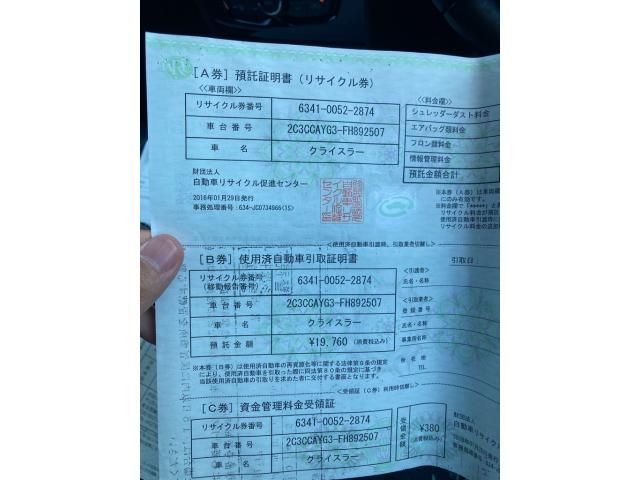 [A券] 預託証明書 (リサイクル券)
<<車両欄>>
リサイクル券番号 6341-0052-2874
車台番号 2C3CCAYG3-FH892507
車名 クライスラー
<<料金欄>>
シュレッダーダスト料金
エアバッグ類料金
フロン類料金
情報管理料金
預託金額合計
財団法人
自動車リサイクル促進センター
2016年01月29日発行
事務処理番号:634-JC0734966(1S)
※本券(A券)は車両欄
にのみ有効です。
<使用済自動車引渡時、引取業者切離し>
[B券] 使用済自動車引取証明書
引取日
リサイクル券番号
(移動報告番号) 6341-0052-2874
車台番号 2C3CCAYG3-FH892507
車名 クライスラー
預託金額 ¥19,760 (消費税込み)
<引渡者>
氏名・名称
<引取業者>
登録番号
氏名・名称
事業所名称
所在地
TEL
※本券(B券)は使用済自動車の再資源化等に関する法律第9条の規定
により、使用済自動車を引取った際に同法第80条の規定に基づき
当該使用済自動車の引取りを求めた者に交付する書面となります。
<受領証(C券)利用時切離し>
[C券] 資金管理料金受領証
リサイクル券番号 6341-0052-2874
車台番号 2C3CCAYG3-FH892507
車名 クライスラー
受領金額 ¥380
(消費税込み)
財団法人
自動車リサイクル